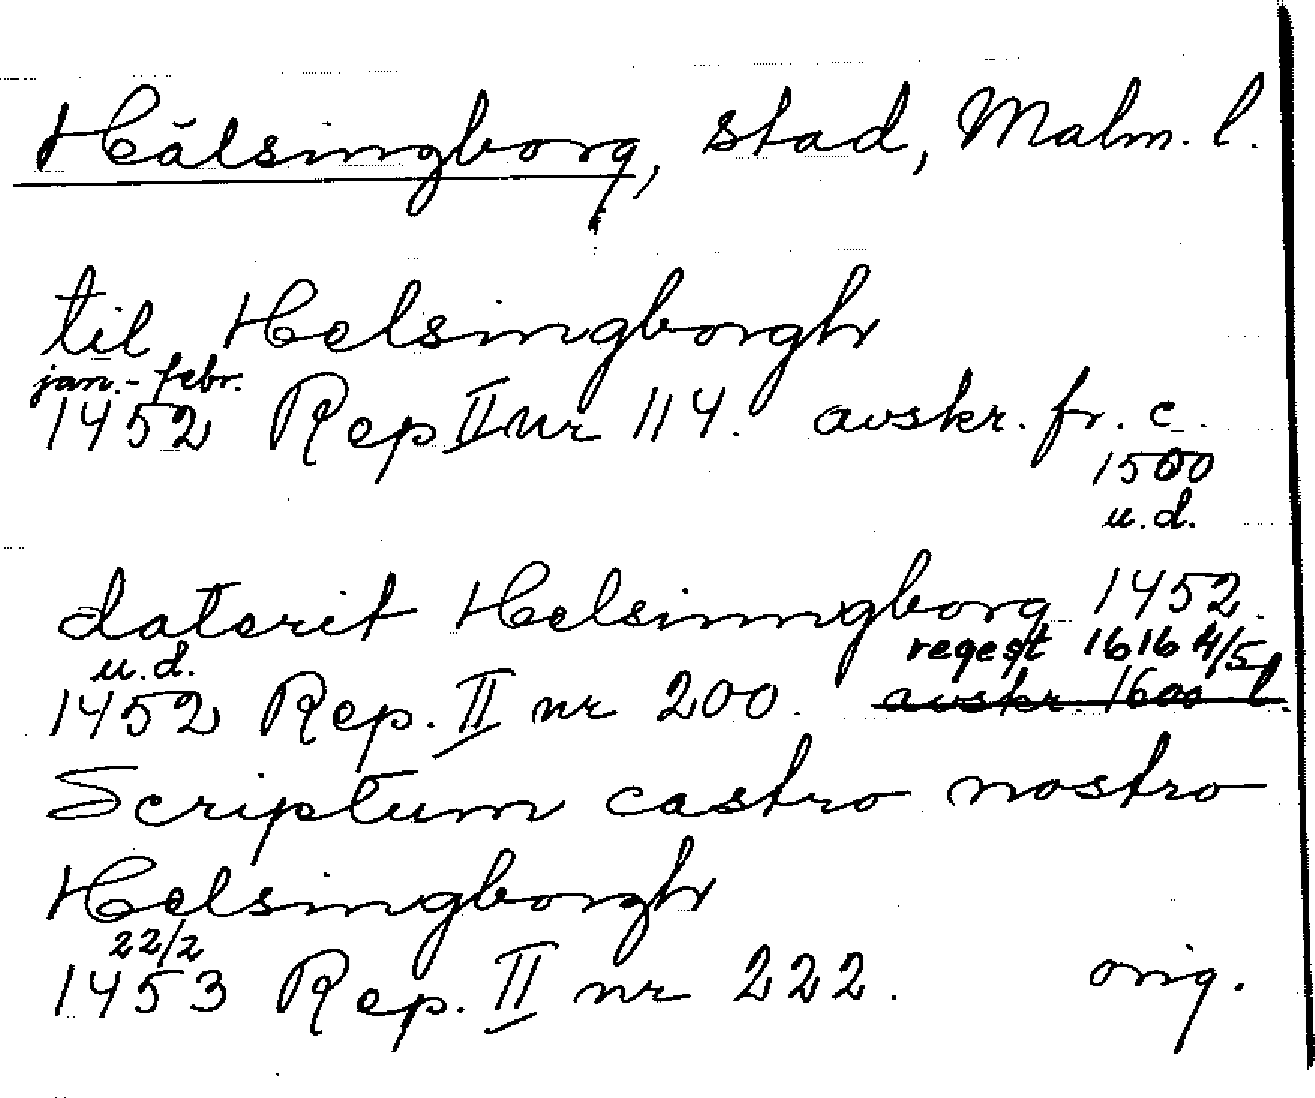 Hälsingborg, stad, Malm. l.
til Helsingborgh
jan.-febr.
1452 Rep II nr 114. avskr. fr. c.
1500
u.d.
daterit Helsinngborg 1452.
u.d. regest 1616 4/5
1452 Rep. II nr 200. avskr. 1600 l.
Scriptum castro nostro
Helsingborgh
22/2
1453 Rep. II nr 222. orig.